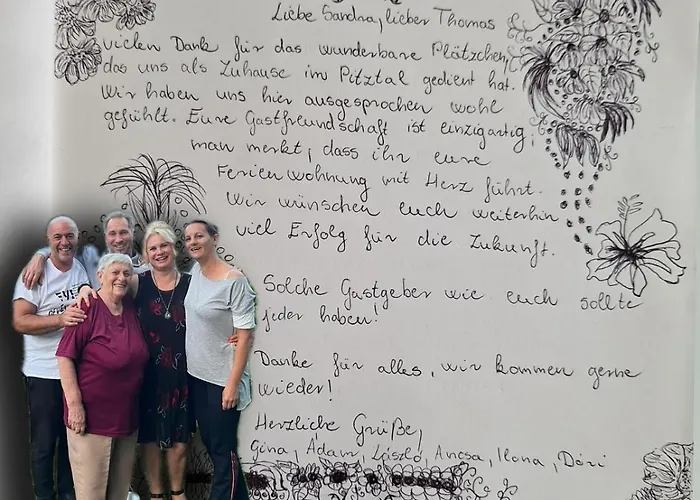 Liebe Sandra, lieber Thomas
vielen Dank für das wunderbare Plätzchen,
das uns als Zuhause im Pitztal gedient hat.
Wir haben uns hier ausgesprochen wohl
gefühlt. Eure Gastfreundschaft ist einzigartig,
man merkt, dass ihr eure
Ferienwohnung mit Herz führt.
Wir wünschen euch weiterhin
viel Erfolg für die Zukunft.
Solche Gastgeber wie euch sollte
jeder haben!
Danke für alles, wir kommen gerne
wieder!
Herzliche Grüße,
Gina, Ádám, László, Ancsa, Ilona, Dóri